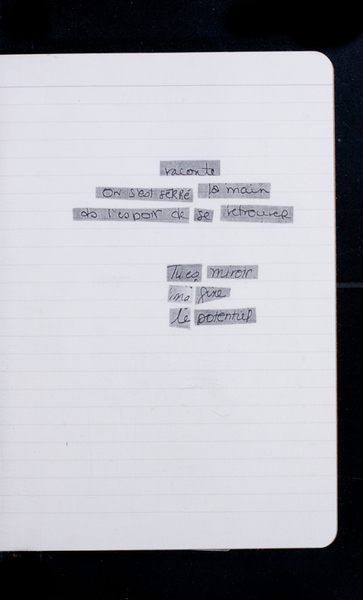 raconte
On s'est serré la main
ds l'espoir de se retrouver
Tu es miroir
me fixe
le potentiel